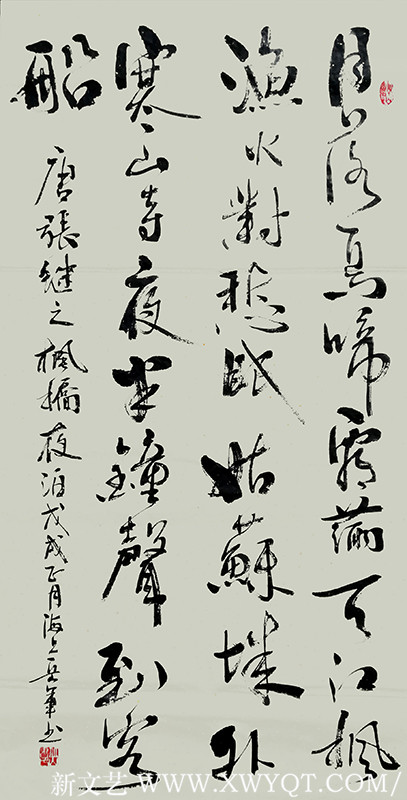 月落烏啼霜滿天江楓
漁火對愁眠姑蘇城外
寒山寺夜半鐘聲到客
船
唐張繼之楓橋夜泊戊戌正月海上
新文艺 WWW.XWYQT.COM